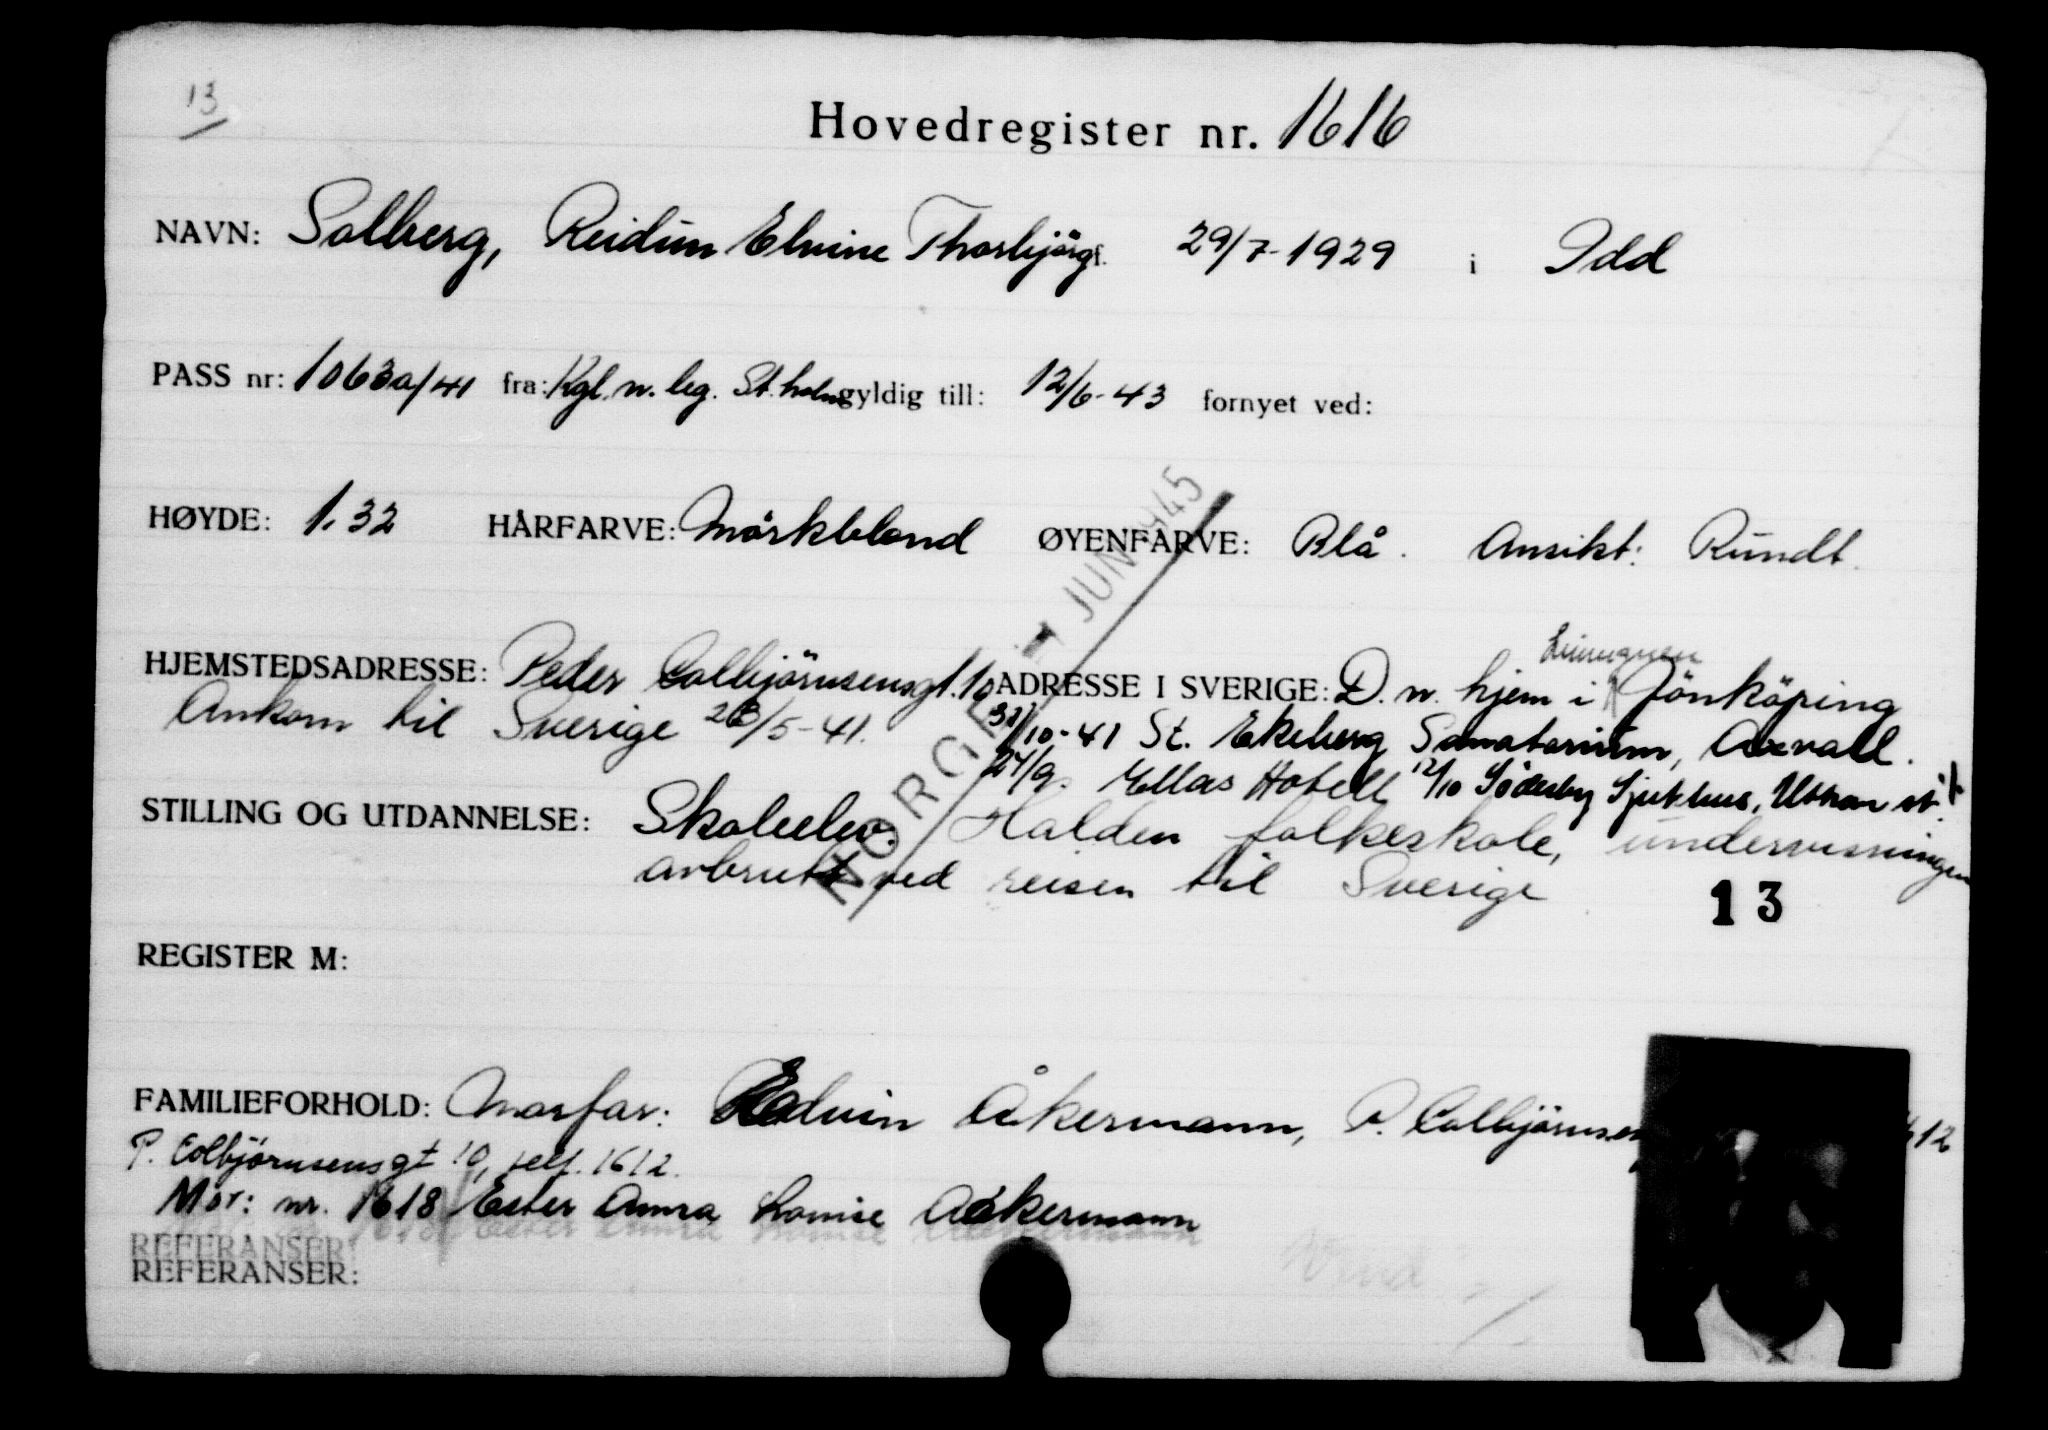 13
Hovedregister nr. 1616
NAVN: Solberg, Reidun Elvine Thorbjörg f. 29/7-1929 i Idd
PASS nr: 1063a/41 fra: Kgl. n. leg. St.holm gyldig till: 12/6-43 fornyet ved:
HØYDE: 1.32 HÅRFARVE: Mörkblond ØYENFARVE: Blå. Ansikt: Rundt.
NORGE - 7 JUN 1945
HJEMSTEDSADRESSE: Peder Colbjörnsensgt. 10 ADRESSE I SVERIGE: D. n. hjem i Jönköping
Ankom til Sverige 28/5-41. 31/10-41 St. Ekeberg Sanatorium, Axvall.
24/9. Ellas Hotell 12/10 Söderby Sjukhus, Uttran st.
STILLING OG UTDANNELSE: Skoleelev. Halden folkeskole, undervisningen
avbrutt ved reisen til Sverige
13
REGISTER M:
FAMILIEFORHOLD: Morfar: Edvin Åkermann, P. Colbjörnsen 12
P. Colbjörnsensgt 10, telf. 1612.
Mor: nr. 1618 Ester Anna Lovise Åkermann
REFERANSER:
REFERANSER:
Vend